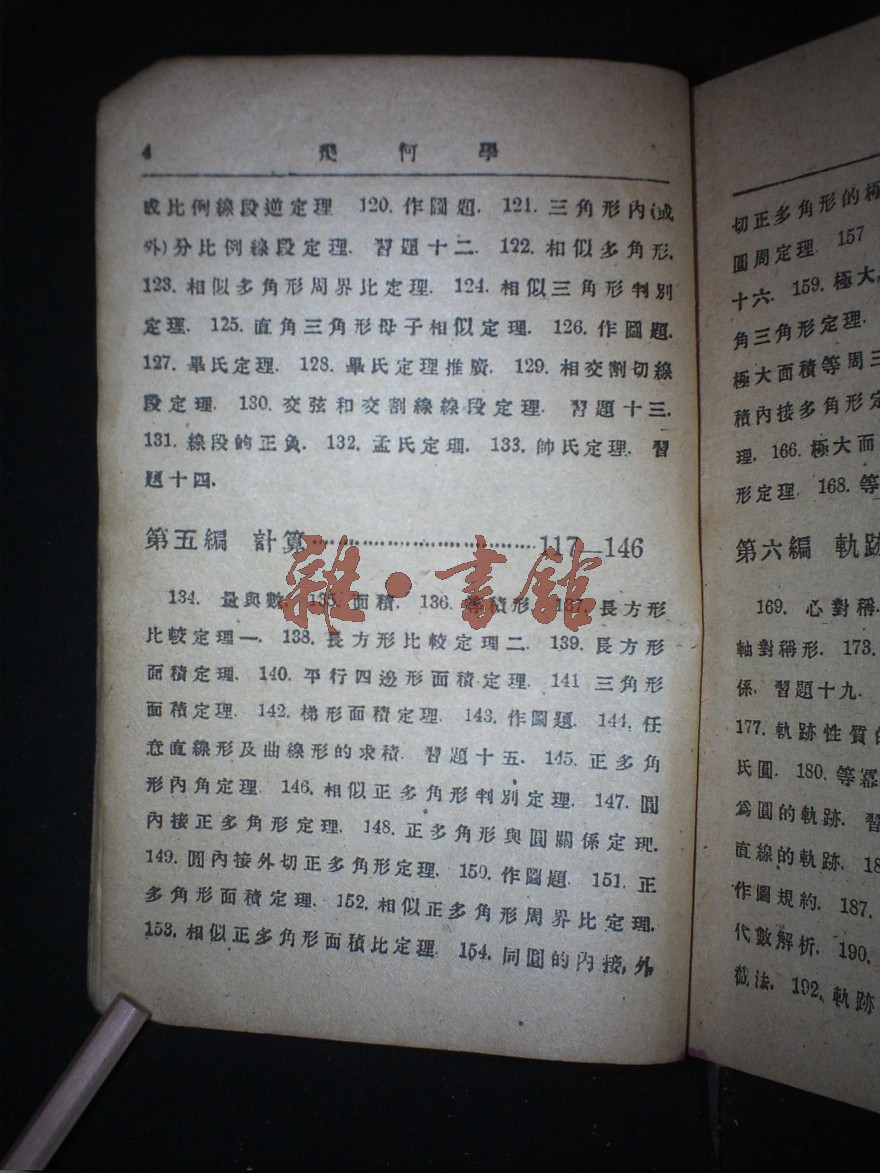 4 幾何學
或比例線段逆定理 120. 作圖題. 121. 三角形內(或
外)分比例線段定理. 習題十二. 122. 相似多角形.
123. 相似多角形周界比定理. 124. 相似三角形判別
定理. 125. 直角三角形母子相似定理. 126. 作圖題.
127. 畢氏定理. 128. 畢氏定理推廣. 129. 相交割切線
段定理. 130. 交弦和交割線線段定理. 習題十三.
131. 線段的正負. 132. 孟氏定理. 133. 帥氏定理. 習
題十四.
第五編 計算……………………………117—146
134. 量與數. 135. 面積. 136. 等積形. 137. 長方形
比較定理一. 138. 長方形比較定理二. 139. 長方形
面積定理. 140. 平行四邊形面積定理. 141 三角形
面積定理. 142. 梯形面積定理. 143. 作圖題. 144. 任
意直線形及曲線形的求積. 習題十五. 145. 正多角
形內角定理. 146. 相似正多角形判別定理. 147. 圓
內接正多角形定理. 148. 正多角形與圓關係定理.
149. 圓內接外切正多角形定理. 150. 作圖題. 151. 正
多角形面積定理. 152. 相似正多角形周界比定理.
153. 相似正多角形面積比定理. 154. 同圓的內接, 外
雜·書館
切正多角形的極
圓周定理. 157
十六. 159. 極大,
角三角形定理.
極大面積等周三
積內接多角形定
理. 166. 極大面
形定理. 168. 等
第六編 軌跡
169. 心對稱.
軸對稱形. 173.
係. 習題十九.
177. 軌跡性質的
氏圓. 180. 等冪
為圓的軌跡. 習
直線的軌跡. 18
作圖規約. 187.
代數解析. 190.
截法. 192. 軌跡